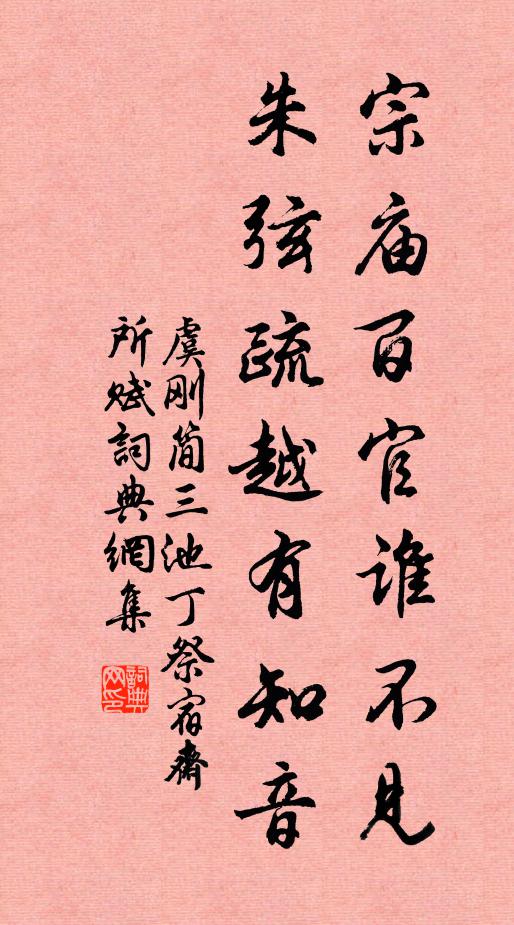 宗庙百官谁不见
朱弦疏越有知音
虞刚简三池丁祭宿斋
所赋詞典網集
詞典網印